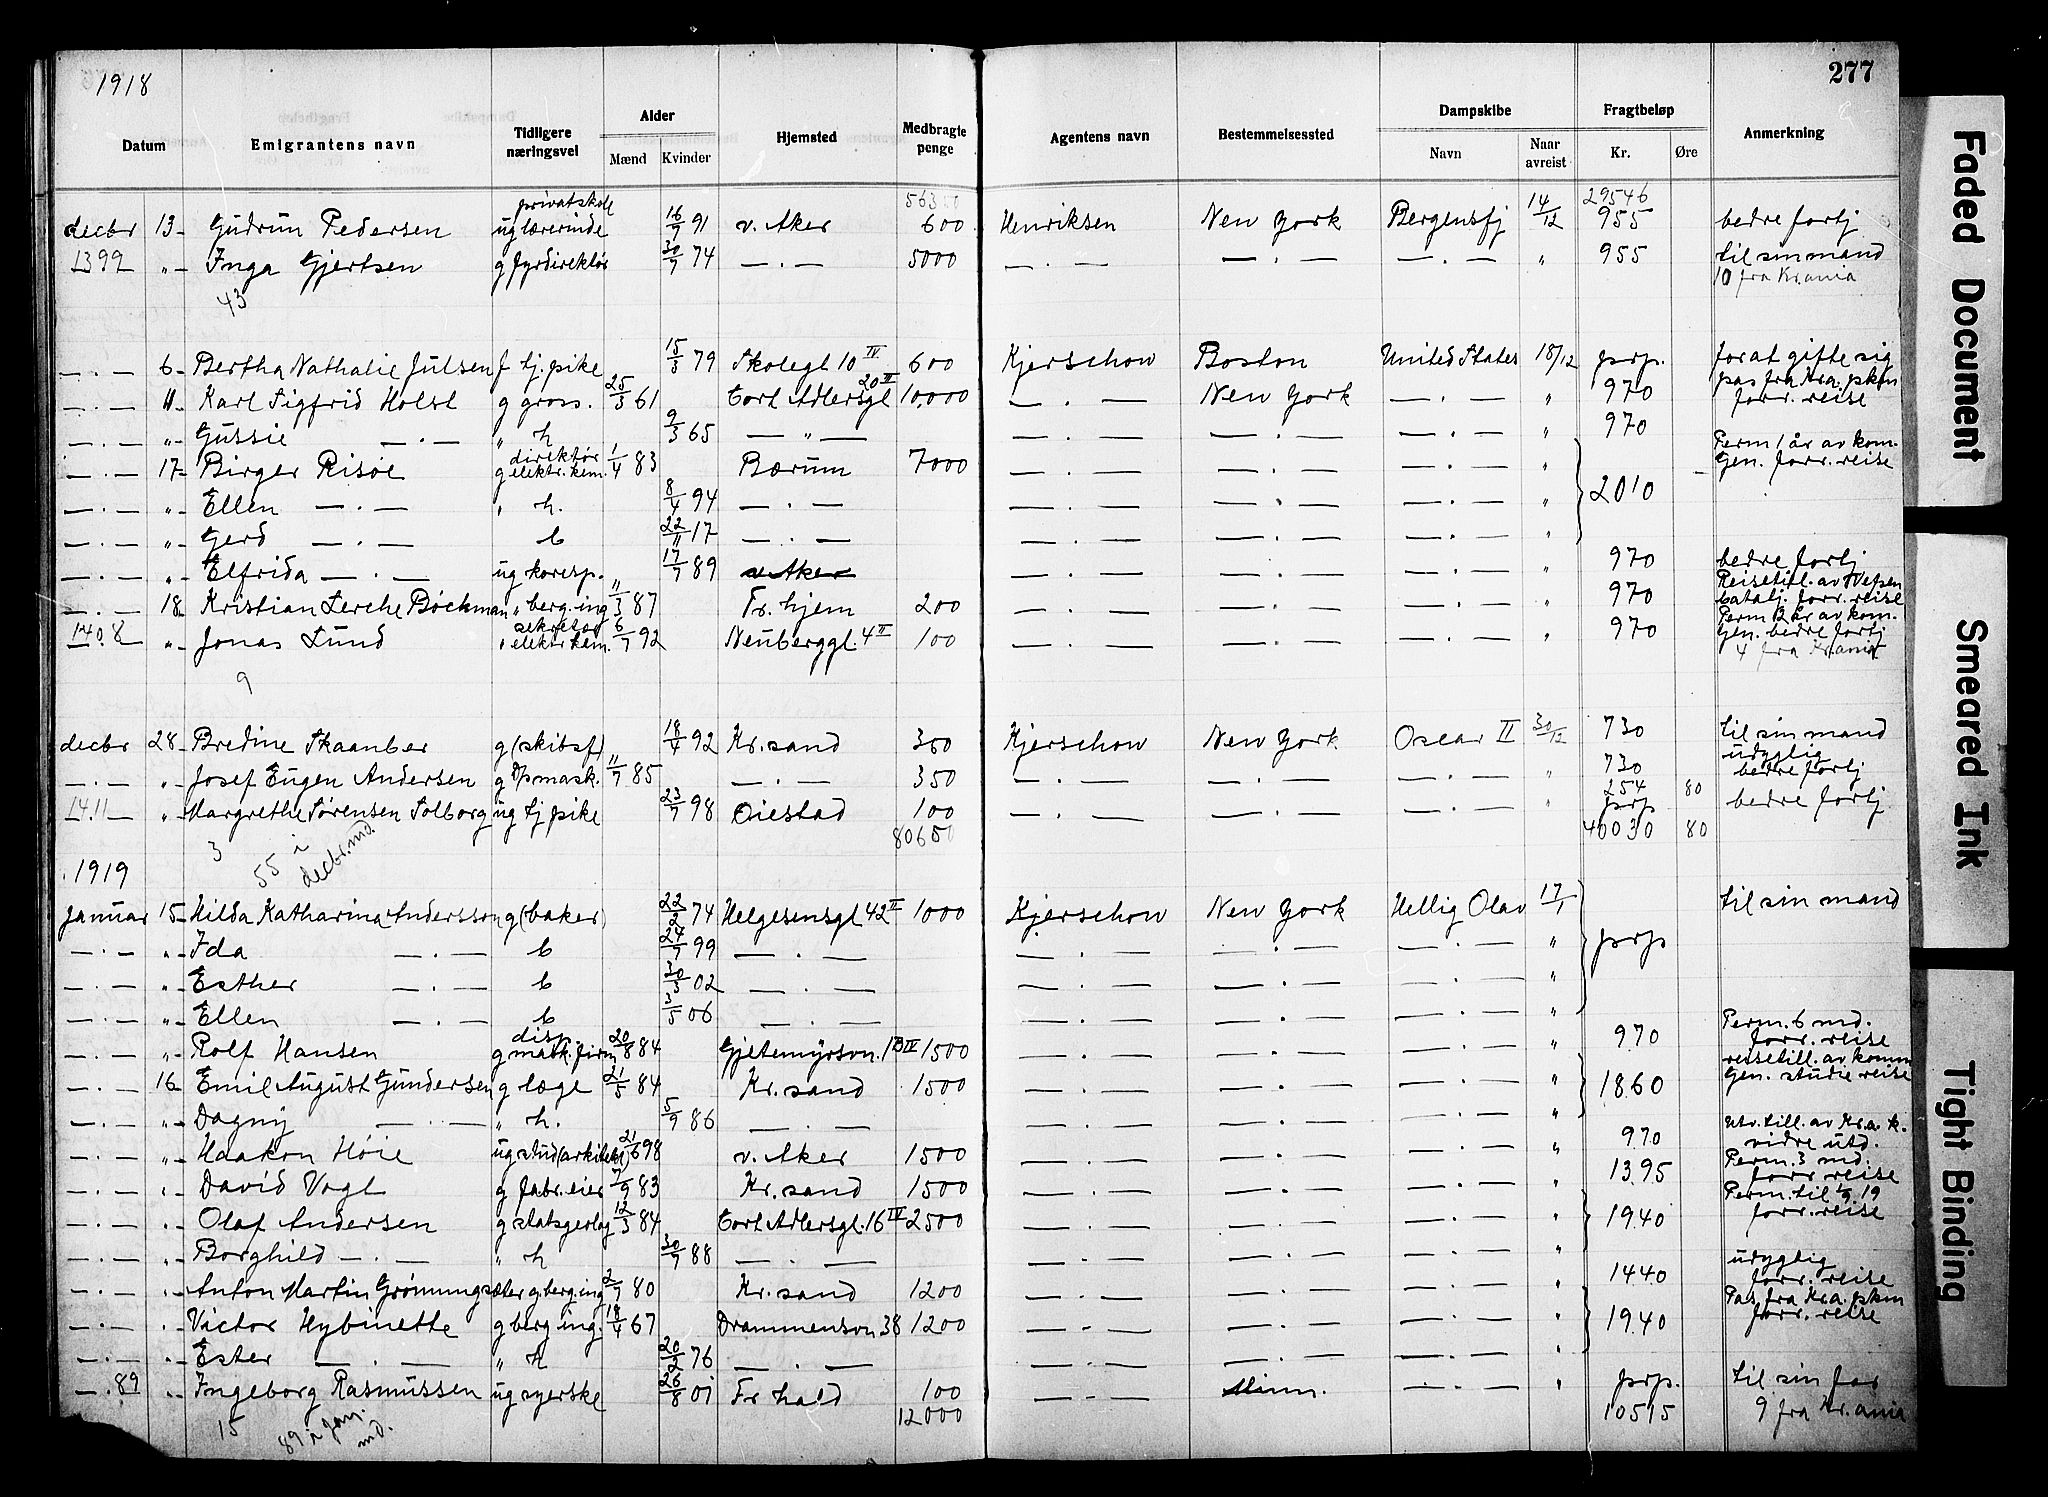 1918
277
Datum | Emigrantens navn | Tidligere næringsvei | Alder Mænd | Kvinder | Hjemsted | Medbragte penge | Agentens navn | Bestemmelsessted | Dampskibe Navn | Naar avreist | Fragtbeløp Kr. | Øre | Anmerkning
56350 | 29546
decbr 13 - Gudrun Pedersen | ug privatskole lærerinde | 16/7 91 | v. Aker | 600 | Henriksen | New York | Bergensfj | 14/12 | 955 | bedre fortj
1399 " - Inga Gjertsen | g fyrdirektør | 30/7 74 | — . — | 5000 | — . — | — . — | — . — | " | 955 | til sin mand
43 | 10 fra Kr.ania
— . — 6 - Bertha Nathalie Julsen | f tj. pike | 15/3 79 | Skolegt 10 IV | 600 | Kjerschow | Boston | United States | 18/12 | prp. | for at gifte sig
— . — 11 - Karl Sigfrid Holst | g gross. | 25/3 61 | Cort Adlersgt 20 II | 10,000 | — . — | New York | — . — | " | 970 | pas fra Kra. pkm forr. reise
— . — " - Gussie — . — | " h | 9/3 65 | — " — | — . — | — . — | — . — | " | 970
— . — 17 - Birger Risøe | g direktør elektr. kem. | 1/4 83 | Bærum | 7000 | — . — | — . — | — . — | " | Perm 1 år av kom. Gen. forr. reise
— . — " - Ellen — . — | " h. | 8/4 94 | — . — | — . — | — . — | — . — | " | 2010
— . — " - Gerd — . — | b | 22/11 17 | — . — | — . — | — . — | — . — | "
— . — " - Elfrida — . — | ug koresp. | 17/7 89 | v. Aker | — . — | — . — | — . — | " | 970 | bedre fortj
— . — 18 - Kristian Lerche Bøckman | " berg. ing | 11/3 87 | Tr. hjem | 200 | — . — | — . — | — . — | " | 970 | Reisetill. av batalj. forr. reise
1408 " - Jonas Lund | " sekretær elektr kem. | 6/7 92 | Neuberggt. 4 II | 100 | — . — | — . — | — . — | " | 970 | Perm 2 år av kom. Gen. bedre fortj
9 | 4 fra Kr.ania
decbr 28 - Bredine Skaanber | g (skibsf) | 18/4 92 | Kr. sand | 350 | Kjerschow | New York | Oscar II | 30/12 | 730 | til sin mand
— . — " - Josef Eugen Andersen | g D/p mask. | 11/7 85 | — . — | 350 | — . — | — . — | — . — | " | 730 | udyglig bedre fortj
254 | 80
1411 " - Margrethe Sørensen Solborg | ug tj pike | 23/7 98 | Oiestad | 100 | — . — | — . — | — . — | " | prp | bedre fortj
80650 | 40030 | 80
3
55 i decbr. md.
1919
Januar 15 - Hilda Katharina Andersson | g (baker) | 22/2 74 | Helgesensgt 42 II | 1000 | Kjerschow | New York | Hellig Olav | 17/1 | til sin mand
— . — " - Ida — . — | b | 24/7 99 | — . — | — . — | — . — | — . — | " | prp
— . — " - Esther — . — | b | 30/3 02 | — . — | — . — | — . — | — . — | "
— . — " - Ellen — . — | b | 3/5 06 | — . — | — . — | — . — | — . — | "
— . — " - Rolf Hansen | g disp. mask. firm | 20/8 84 | Gjetemyrsvn. 13 IV | 1500 | — . — | — . — | — . — | " | 970 | Perm. 6 md. forr. reise
— . — 16 - Emil August Gundersen | g læge | 21/5 84 | Kr. sand | 1500 | — . — | — . — | — . — | " | 1860 | reisetill. av komm Gen. studie reise
— . — " - Dagny — . — | " h. | 5/9 86 | — . — | — . — | — . — | — . — | "
— . — " - Haakon Høie | ug stud (arkitekt) | 21/6 98 | v. Aker | 1500 | — . — | — . — | — . — | " | 970 | utv. till. av Kr.a. k. vidre utd.
— . — " - David Vogt | g fabr. eier | 7/9 83 | Kr. sand | 1500 | — . — | — . — | — . — | " | 1395 | Perm. 3 md. forr reise
— . — " - Olaf Andersen | g statsgeolog | 12/3 84 | Cort Adlersgt. 16 IV | 2500 | — . — | — . — | — . — | " | 1940 | Perm. til 19 forr. reise
— . — " - Borghild — . — | " h | 30/7 88 | — . — | — . — | — . — | — . — | "
— . — " - Anton Martin Grønningsæter | g. berg. ing | 2/7 80 | Kr. sand | 1200 | — . — | — . — | — . — | " | 1440 | udyglig forr. reise
— . — " - Victor Hybinette | g berg ing. | 18/4 67 | Drammensvn 38 | 1200 | — . — | — . — | — . — | " | 1940 | Pas fra Kra. pkm forr. reise
— . — " - Ester — . — | " h | 20/2 76 | — . — | — . — | — . — | — . — | "
— . 89 " - Ingeborg Rasmussen | ug syerske | 26/8 01 | Fr. hald | 100 | — . — | Minn. | — . — | " | prp. | til sin far
12000 | 10515 | 9 fra Kr.ania
15
89 i jan. md.
Faded Document
Smeared Ink
Tight Binding